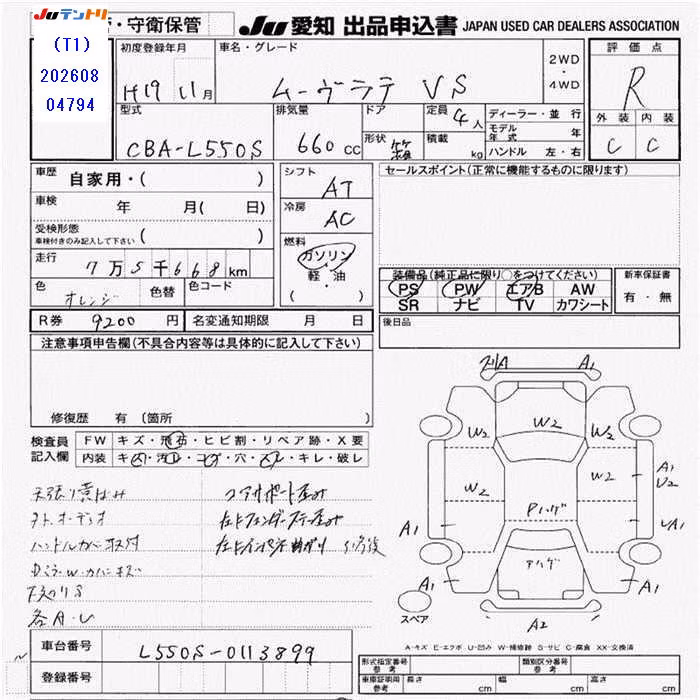 Juテントリ
・守衛保管
Ju 愛知 出品申込書 JAPAN USED CAR DEALERS ASSOCIATION
(T1)
202608
04794
初度登録年月
H19 11月
車名・グレード
ムーヴラテ VS
2WD
・
4WD
評価点
R
外装 内装
C C
型式
CBA-L550S
排気量
660 CC
ドア
形状
定員 4人
積載 kg
ディーラー・並行
モデル年式 年
ハンドル 左・右
車歴 自家用・( )
車検 年 月( 日)
受検形態
車検付きのみ記入して下さい ( )
走行 7万5千668km
色 オレンジ 色替 色コード
シフト AT
冷房 AC
燃料
ガソリン
・
軽・油
( ・ )
セールスポイント(正常に機能するものに限ります)
装備品(純正品に限り○をつけてください)
PS PW エアB AW
SR ナビ TV カワシート
新車保証書
有・無
R券 9200円 名変通知期限 月 日
後日品
注意事項申告欄(不具合内容等は具体的に記入して下さい)
修復歴 有 (箇所
検査員記入欄
FW キズ・飛石・ヒビ割・リペア跡・X要
内装 キズ・汚れ・コゲ・穴・スレ・キレ・破レ
天張り黄ばみ
コアサポート歪み
ハンドルカバー
各A・U
A1
W2 W2 W2
W2 W2
Pハゲ
A1
U2
A1
A1
A1
A1
アハゲ
A2
スペア
A-キズ E-エクボ U-凹み W-補修跡 S-サビ C-腐食 XX-交換済
車台番号 L550S-0113899
登録番号
形式指定番号 参考
類別区分番号 参考
車庫証明用 参考 長さ cm 幅 cm 高さ cm